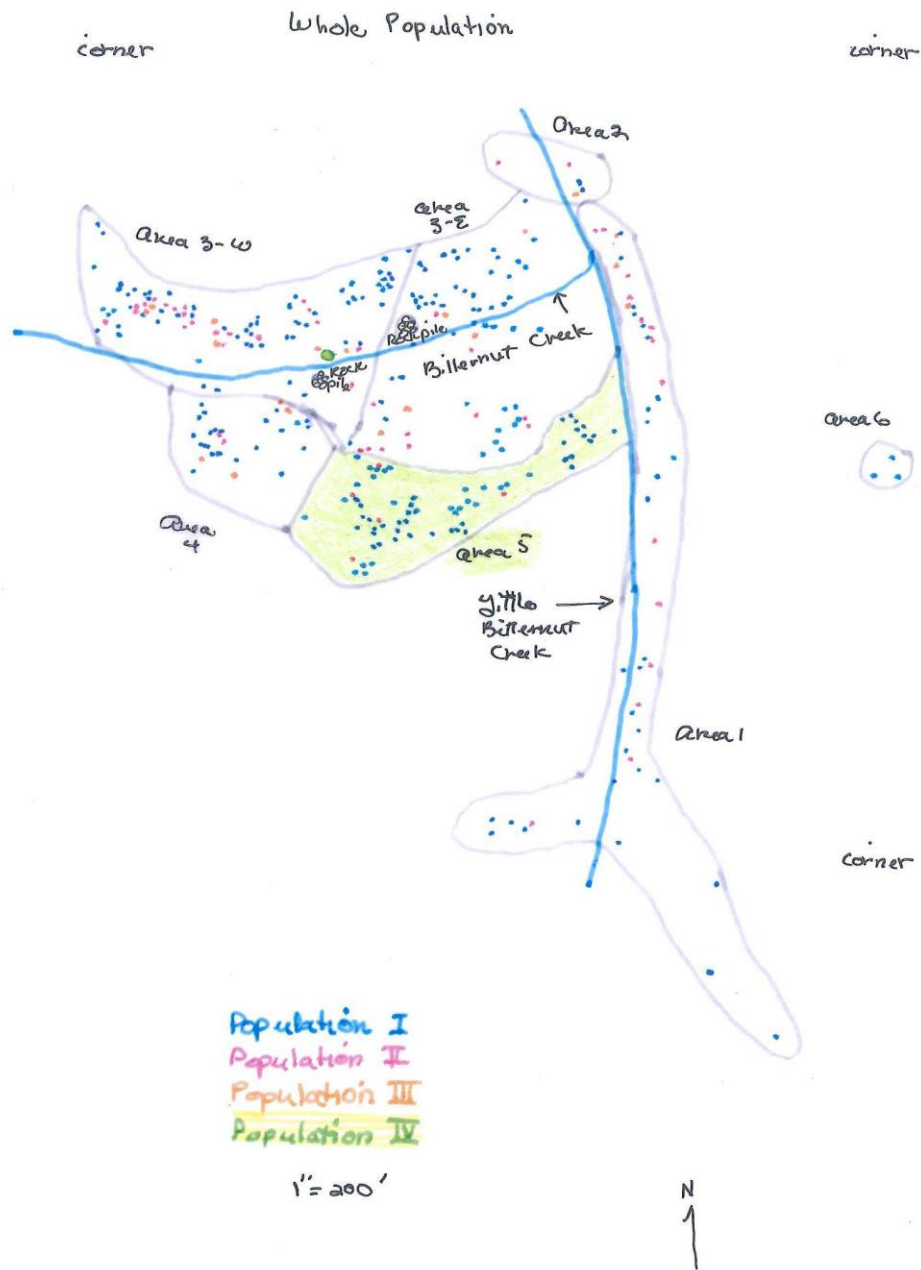 Whole Population
corner
corner
Area 2
Area
3-E
Area 3-W
Rockpile
Rock
pile
Bitternut Creek
Area 6
Area
4
Area 5
Little
Bitternut
Creek
Area 1
corner
Population I
Population II
Population III
Population IV
1"=200'
N